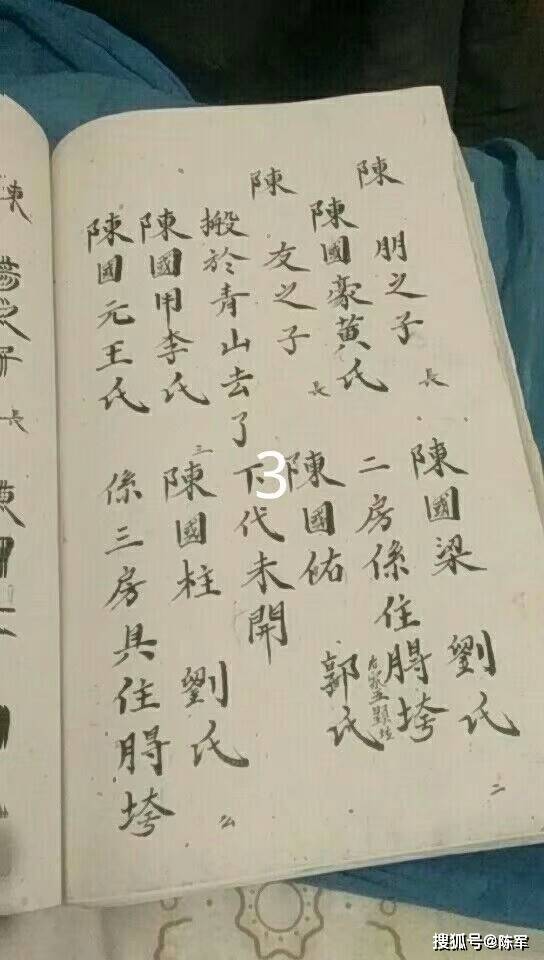 陳 朋之子 長 陳國梁 劉氏 二
陳國豪黃氏 二房係住脟垮
陳 友之子 長 陳國佑 郭氏
搬於青山去了下代未開
陳國用李氏 三 陳國柱 劉氏 么
陳國元王氏 係三房具住脟垮
之子 長
3
搜狐号@陈军